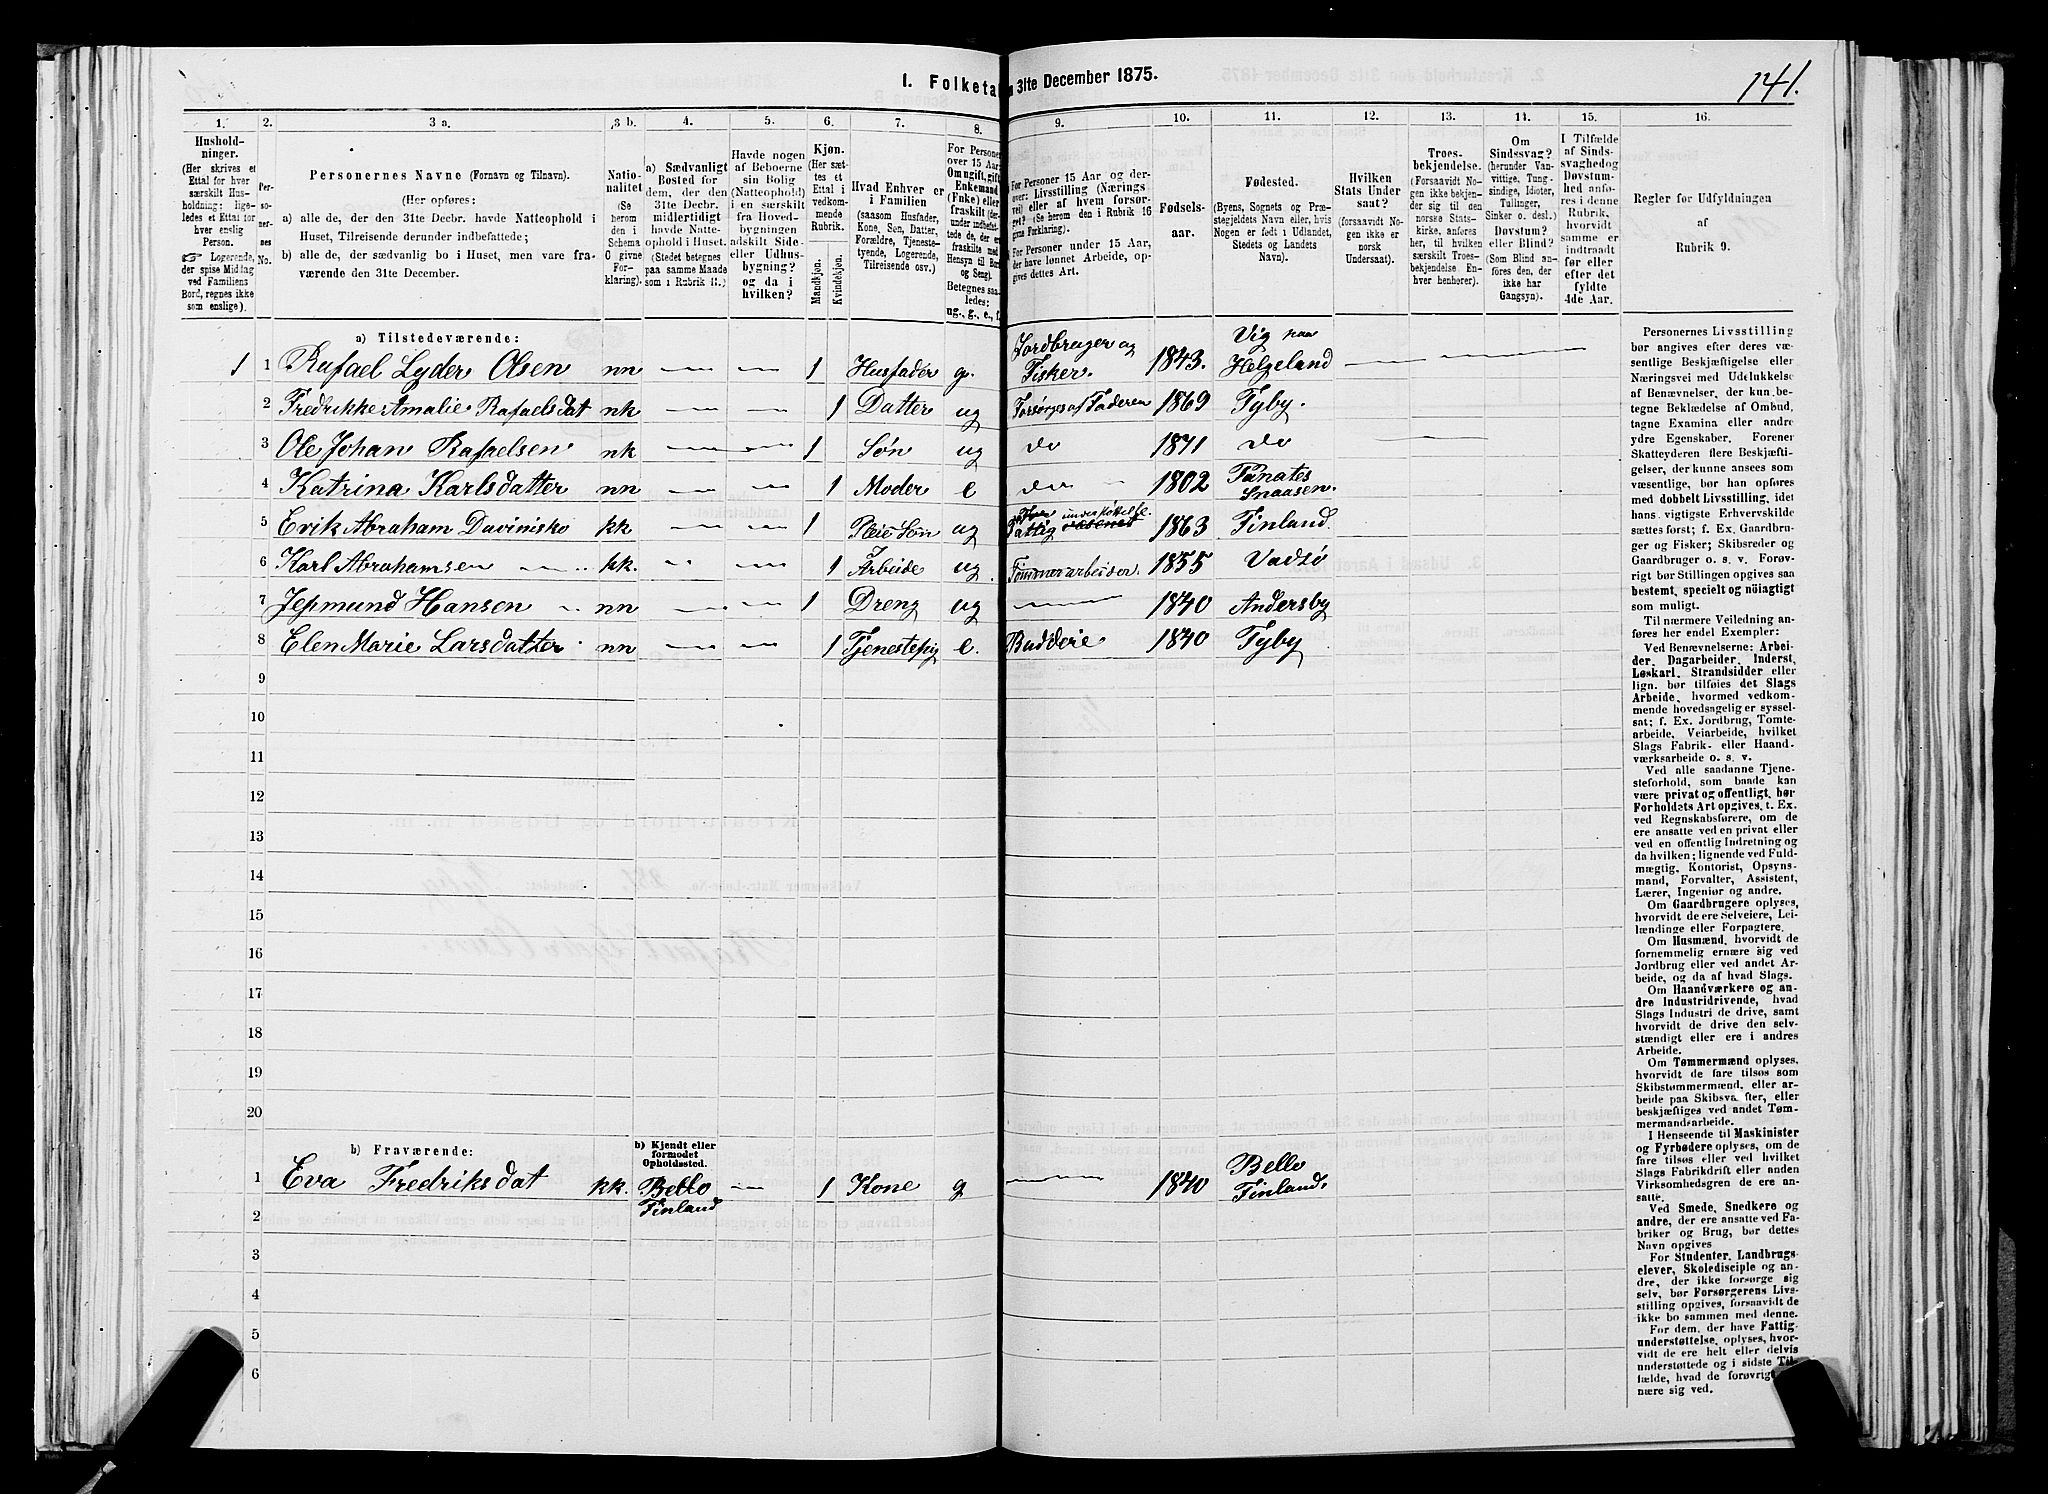 1. Folketal
31te December 1875.
141.
1.
2.
3 a.
3 b.
4.
5.
6.
7.
8.
9.
10.
11.
12.
13.
14.
15.
16.
Hushold-
ninger.
(Her skrives et
Ettal for hver
særskilt Hus-
holdning; lige-
ledes et Ettal for
hver enslig
Person.
☞ Logerende,
der spise Middag
ved Familiens
Bord, regnes ikke
som enslige).
Per-
so-
ner-
nes
No.
Personernes Navne (Fornavn og Tilnavn).
(Her opføres:
a) alle de, der den 31te Decbr. havde Natteophold i
Huset, Tilreisende derunder indbefattede;
b) alle de, der sædvanlig bo i Huset, men vare fra-
værende den 31te December.
Natio-
nalitet
(Se
herom
den i
Schema
C givne
For-
klaring).
a) Sædvanligt
Bosted for
dem, der den
31te Decbr.
midlertidigt
havde Natte-
ophold i Huset.
(Stedet betegnes
paa samme Maade
som i Rubrik 11.)
Havde nogen
af Beboerne
sin Bolig
(Natteophold)
i en særskilt
fra Hoved-
bygningen
adskilt Side-
eller Udhus-
bygning?
og da i
hvilken?
Kjøn.
(Her sæt-
tes et
Ettal i
vedkom-
mende
Rubrik.
Mandkjøn.
Kvindekjøn.
Hvad Enhver er
i Familien
(saasom Husfader,
Kone, Søn, Datter,
Forældre, Tjeneste-
tyende, Logerende,
Tilreisende osv.)
For Personer
over 15 Aar:
Om ugift, gift,
Enkemand
(Fnke) eller
fraskilt
Betegnes saa-
ledes:
ug., g., e., f.
For Personer 15 Aar og der-
over: Livsstilling (Nærings-
vei) eller af hvem forsør-
get? (Se herom den i Rubrik 16
givne Forklaring).
For Personer under 15 Aar,
der have lønnet Arbeide, op-
gives dettes Art.
Fødsels-
aar.
Fødested.
(Byens, Sognets og Præ-
stegjeldets Navn eller, hvis
Nogen er født i Udlandet,
Stedets og Landets
Navn).
Hvilken
Stats Under
saat?
(forsaavidt No-
gen ikke er
norsk
Undersaat).
Troes-
bekjendelse.
(Forsaavidt No-
gen ikke bekjen-
der sig til den
norske Stats-
kirke, anføres
her, til hvilken
særskilt Troes-
bekjendelse En-
hver henhører).
Om
Sindssvag?
(herunder Van-
vittige, Tung-
sindige, Idioter,
Tullinger,
Sinker o. desl.)
Døvstum?
eller Blind?
(Som Blind an-
føres den, der
ikke har
Gangsyn).
I Tilfælde
af Sinds-
svaghedog
Døvstum-
hed anfø-
res i denne
Rubrik,
hvorvidt
samme er
indtraadt
før eller
efter det
fyldte
4de Aar.
Regler for Udfyldningen
af
Rubrik 9.
a) Tilstedeværende:
1 1 Rafael Lyder Olsen nn 1 Husfader g. Jordbruger og Fisker. 1843. Vig paa Helgeland
2 Fredrikke Amalie Rafaelsdat nk 1 Datter ug Forsørges af Faderen 1869 Tyby.
3 Ole Johan Rafaelsen nk 1 Søn ug do 1871 do
4 Katrina Karlsdatter nn 1 Moder e do 1802 Snaasen.
5 Erik Abraham Davinisko kk 1 Pleie Søn ug Fattig understøttelse. 1863 Finland
6 Karl Abrahamsen kk. 1 Arbeide ug. Tømmerarbeider. 1855 Vadsø
7 Jesmund Hansen nn 1 Dreng ug 1840 Andersby
8 Elen Marie Larsdatter nn 1 Tjenestepig e. Buddeie 1840 Tyby
9
10
11
12
13
14
15
16
17
18
19
20
b) Fraværende:
b) Kjendt eller
formodet
Opholdssted.
1 Eva Fredriksdat kk. Bello Finland 1 Kone g 1840 Bello Finland.
2
3
4
5
6
Personernes Livsstilling
bør angives efter deres væ-
sentlige Beskjæftigelse eller
Næringsvei med Udelukkelse
af Benævnelser, der kun be-
tegne Beklædelse af Ombud,
tagne Examina eller andre
ydre Egenskaber. Forener
Skatteyderen flere Beskjæfti-
gelser, der kunne ansees som
væsentlige, bør han opføres
med dobbelt Livsstilling, idet
hans vigtigste Erhvervskilde
sættes først; f. Ex. Gaardbru-
ger og Fisker; Skibsreder og
Gaardbruger o. s. v. Forøv-
rigt bør Stillingen opgives saa
bestemt, specielt og nöiagtigt
som muligt.
Til nærmere Veiledning an-
føres her endel Exempler:
Ved Benævnelserne: Arbei-
der, Dagarbeider, Inderst,
Løskarl, Strandsidder eller
lign. bør tilføies det Slags
Arbeide, hvormed vedkom-
mende hovedsagelig er syssel-
sat; f. Ex. Jordbrug, Tomte-
arbeide, Veiarbeide, hvilket
Slags Fabrik- eller Haand-
værksarbeide o. s. v.
Ved alle saadanne Tjene-
steforhold, som baade kan
være privat og offentligt, bør
Forholdets Art opgives, t. Ex.
ved Regnskabsførere, om de
ere ansatte ved en privat eller
ved en offentlig Indretning og
da hvilken; lignende ved Fuld-
mægtig, Kontorist, Opsyns-
mand, Forvalter, Assistent,
Lærer, Ingeniør og andre.
Om Gaardbrugere oplyses,
hvorvidt de ere Selveiere, Lei-
lændinge eller Forpagtere.
Om Husmænd, hvorvidt de
fornemmelig ernære sig ved
Jordbrug eller ved andet Ar-
beide, og da af hvad Slags.
Om Haandværkere og an-
dre Industridrivende, hvad
Slags Industri de drive, samt
hvorvidt de drive den selv-
stændigt eller ere i andres
Arbeide.
Om Tømmermænd oplyses,
hvorvidt de fare tilsøs som
Skibstømmermænd, eller ar-
beide paa Skibsværfter, eller
beskjæftiges ved andet Tøm-
mermandsarbeide.
I Henseende til Maskinister
og Fyrbødere oplyses, om de
fare tilsøs eller ved hvilket
Slags Fabrikdrift eller anden
Virksomhedsgren de ere an-
satte.
Ved Smede, Snedkere og
andre, der ere ansatte ved Fa-
briker og Brug, bør dettes
Navn opgives
For Studenter, Landbrugs-
elever, Skoledisciple og an-
dre, der ikke forsørge sig
selv, bør Forsørgerens Livs-
stilling opgives, forsaavidt de
ikke bo sammen med denne.
For dem, der have Fattig-
understøttelse, oplyses, hvor-
vidt de ere helt eller delvis
understøttede og i sidste Til-
fælde, hvad de forøvrigt
nære sig ved.